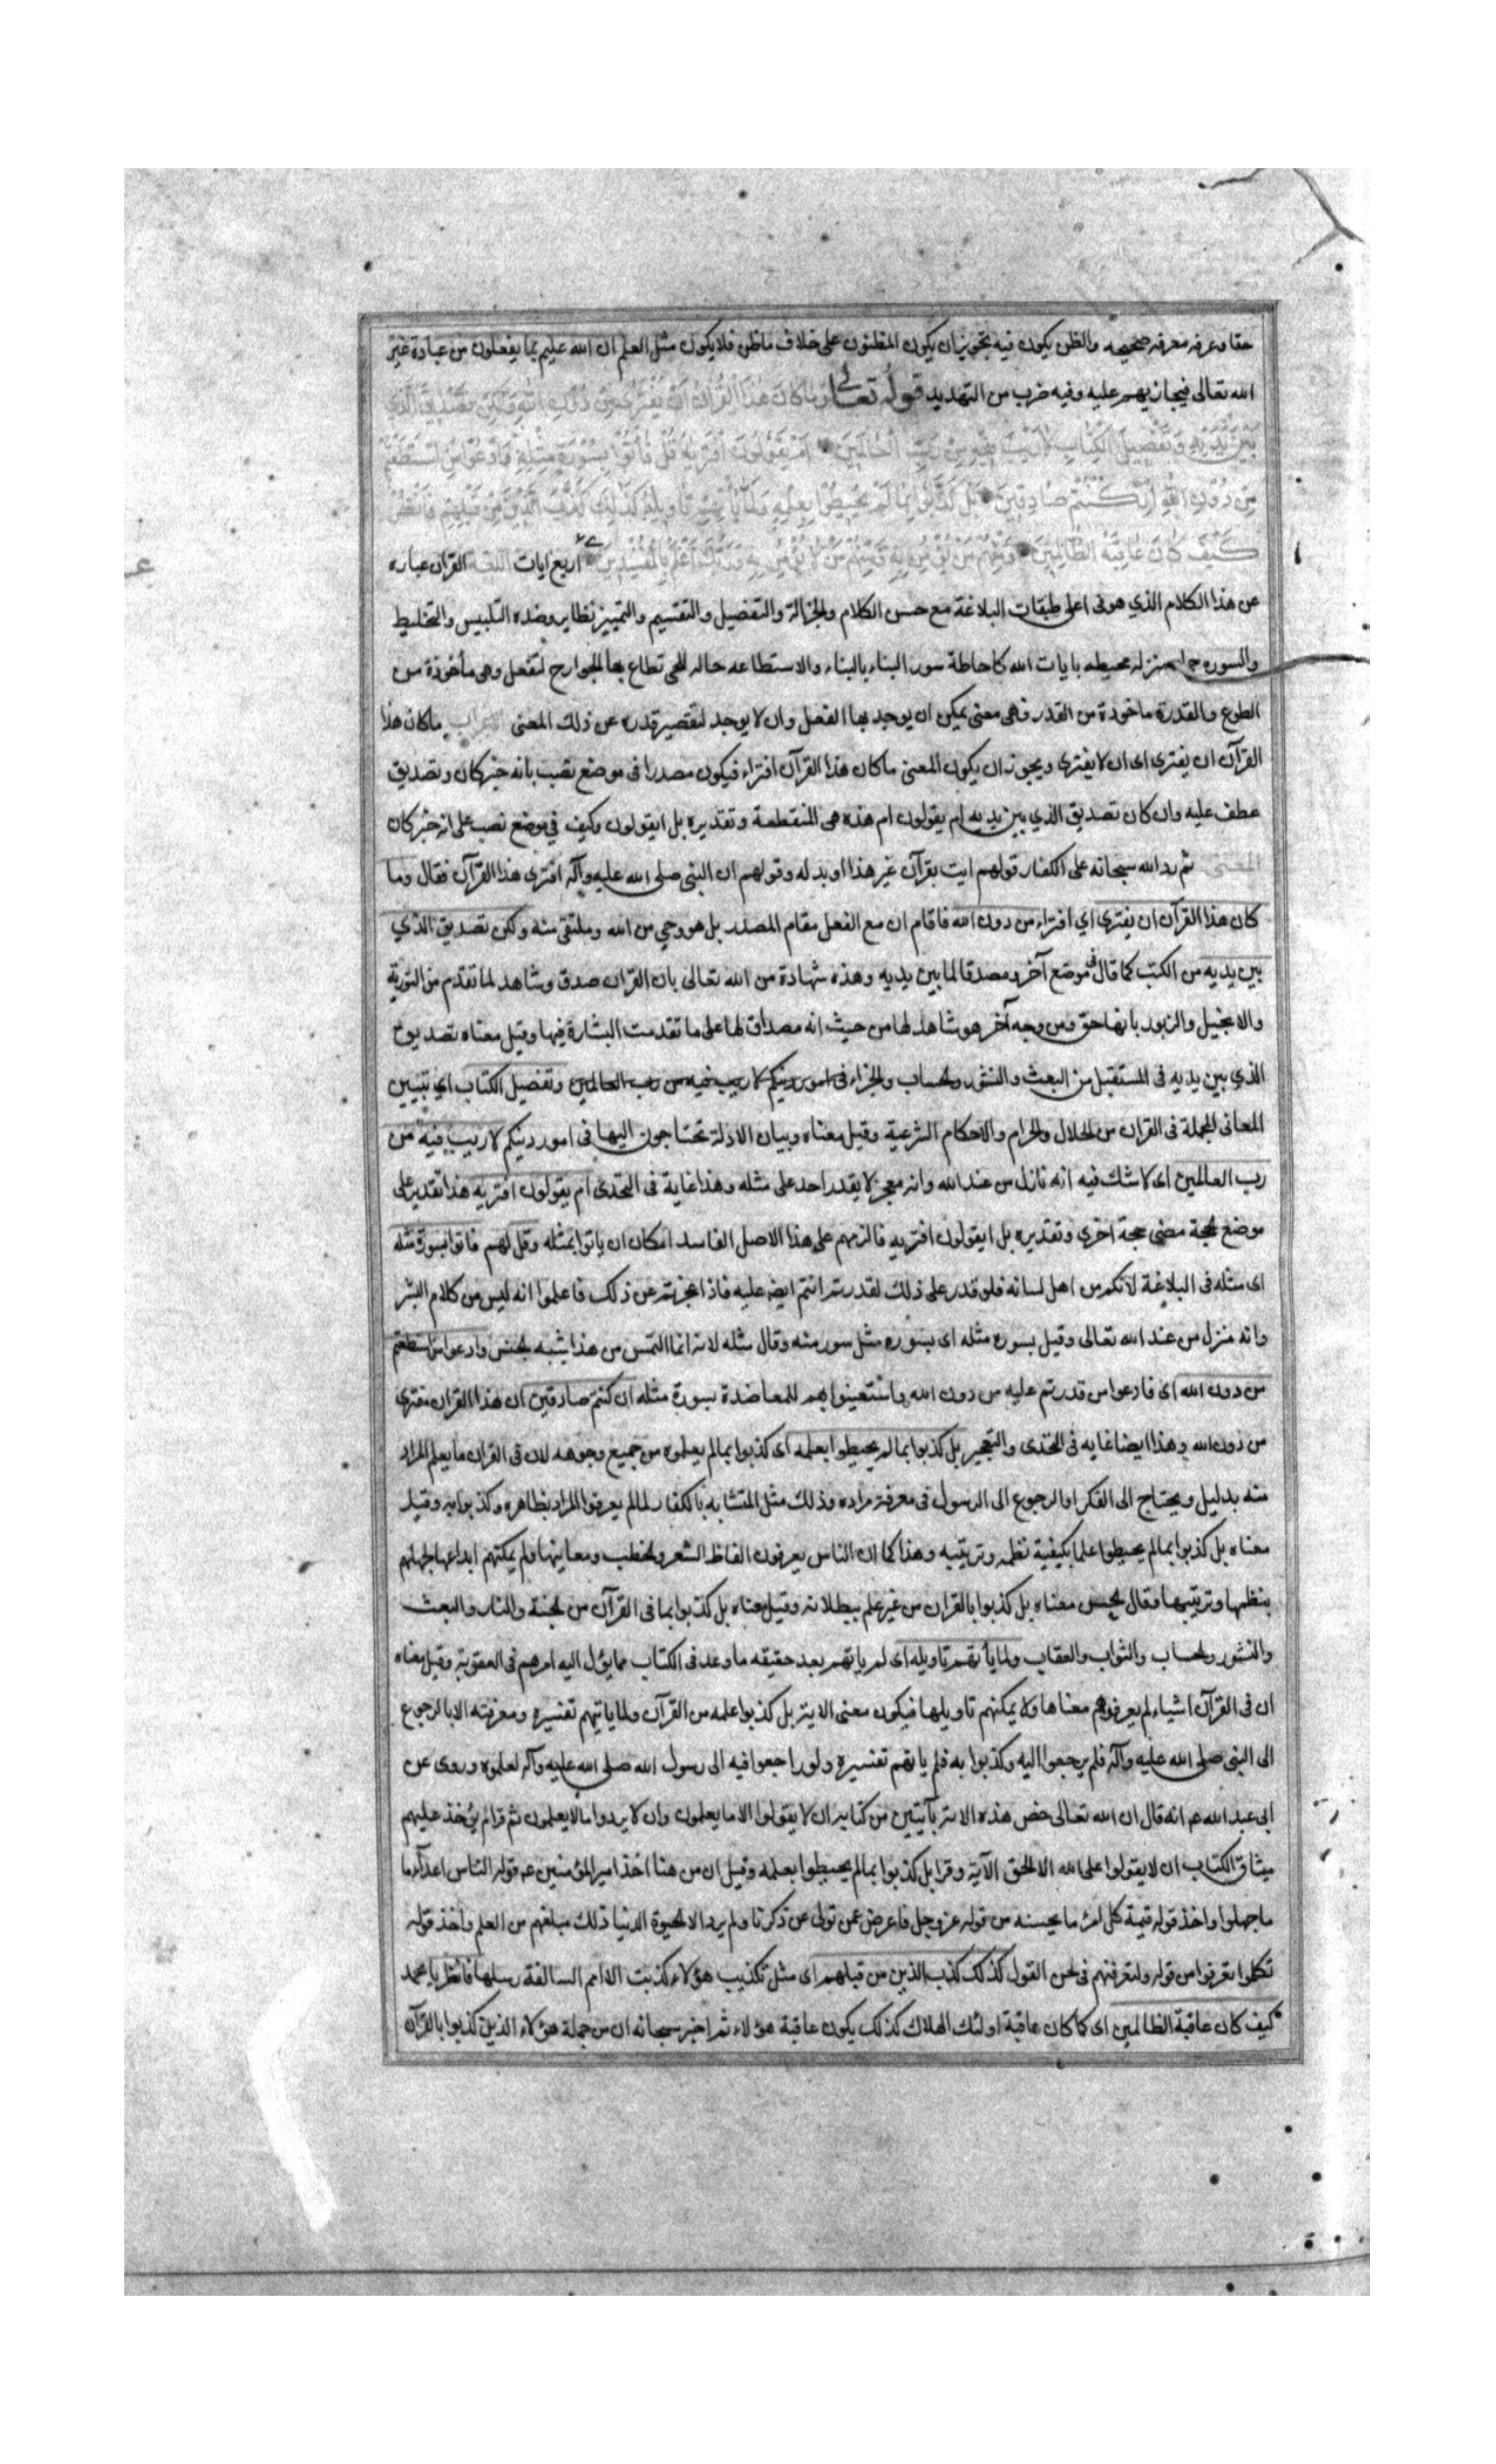 حقا وعرفه معرفه صحيحه والظن يكون فيه تجويز ان يكون المظنون على خلاف ما ظن فلا يكون مثل العلم ان الله عليم بما يفعلون من عبادة غير
الله تعالى فيجازيهم عليه وفيه ضرب من التهديد قوله تعالى وما كان هذا القرآن ان يفترى من دون الله ولكن تصديق الذي
بين يديه وتفصيل الكتاب لا ريب فيه من رب العالمين ام يقولون افتريه قل فأتوا بسورة مثله وادعوا من استطعتم
من دون الله ان كنتم صادقين بل كذبوا بما لم يحيطوا بعلمه ولما يأتهم تاويله كذلك كذب الذين من قبلهم فانظر
كيف كان عاقبة الظالمين ومنهم من يؤمن به ومنهم من لا يؤمن به وربك اعلم بالمفسدين اربع ايات اللغة القران عباره
عن هذا الكلام الذي هو فى اعلى طبقات البلاغة مع حسن الكلام والجزالة والتفصيل والتقسيم والتمييز نظاير وضده التلبيس والتخليط
والسوره منزله محيطه بايات الله كاحاطة سور البناء بالبناء والاستطاعه حاله للحى تطاع بها الجوارح للفعل وهى مأخوذة من
الطوع والقدرة ماخوذة من القدر فهى معنى يمكن ان يوجد بها الفعل وان لا يوجد لتقصير قدره عن ذلك المعنى الاعراب ما كان هذا
القرآن ان يفترى اى ان لا يفترى ويجوز ان يكون المعنى ما كان هذا القرآن افتراء فيكون مصدرا فى موضع نصب بانه خبر كان وتصديق
عطف عليه وان كان تصديق الذي بين يديه ام يقولون ام هذه هى المنقطعة وتقديره بل ايقولون وكيف في موضع نصب على انه خبر كان
المعنى ثم رد الله سبحانه على الكفار قولهم ايت بقرآن غير هذا او بدله وقولهم ان النبى صلى الله عليه وآله افترى هذا القرآن فقال وما
كان هذا القرآن ان يفترى اي افتراء من دون الله فاقام ان مع الفعل مقام المصدر بل هو وحي من الله ومتلقى منه ولكن تصديق الذي
بين يديه من الكتب كما قال فى موضع آخر ومصدقا لما بين يديه وهذه شهادة من الله تعالى بان القران صدق وشاهد لما تقدم من التورية
والانجيل والزبور بانها حق ومن وجه آخر هو شاهد لها من حيث انه مصداق لها على ما تقدمت البشارة فيها وقيل معناه تصديق
الذي بين يديه فى المستقبل من البعث والنشر والحساب والجزاء فى امور دينكم لا ريب فيه من رب العالمين وتفصيل الكتاب اي تبيين
المعانى المجملة فى القران من الحلال والحرام والاحكام الشرعية وقيل معناه وبيان الادلة تحتاجون اليها فى امور دينكم لا ريب فيه من
رب العالمين اى لا شك فيه انه نازل من عند الله وانه معجز لا يقدر احد على مثله وهذا غاية فى التحدى ام يقولون افتريه هذا تقدير على
موضع الحجة مضى حجة اخرى وتقديره بل ايقولون افتريه فالزمهم على هذا الاصل الفاسد امكان ان ياتوا بمثله وقل لهم فاتوا بسورة مثله
اى مثله فى البلاغة لانكم من اهل لسانه فلو قدر على ذلك لقدرتم انتم ايضا عليه فاذا عجزتم عن ذلك فاعلموا انه ليس من كلام البشر
وانه منزل من عند الله تعالى وقيل بسوره مثله اى بسوره مثل سور منه وقال مثله لانه انما التمس من هذا شبه الجنس وادعوا من استطعتم
من دون الله اى فادعوا من قدرتم عليه من دون الله واستعينوا بهم للمعاضدة بسورة مثله ان كنتم صادقين ان هذا القران مفترى
من دون الله وهذا ايضا غايه فى التحدى والتعجيز بل كذبوا بما لم يحيطوا بعلمه اى كذبوا بما لم يعلموه من جميع وجوهه لان فى القران ما يعلم المراد
منه بدليل ويحتاج الى الفكر او الرجوع الى الرسول فى معرفة مراده وذلك مثل المتشابه بالكفار لما لم يعرفوا المراد بظاهره وكذبوا به وقيل
معناه بل كذبوا بما لم يحيطوا علما بكيفية نظمه وترتيبه وهذا كما ان الناس يعرفون الفاظ الشعر والخطب ومعانيها ولم يمكنهم ابداعها لجهلهم
بنظمها وترتيبها وقال الحسن معناه بل كذبوا بالقران من غير علم ببطلانه وقيل معناه بل كذبوا بما فى القرآن من الجنة والنار والبعث
والنشور والحساب والثواب والعقاب ولما يأتهم تاويله اى لم ياتهم بعد حقيقه ما وعد فى الكتاب مما يؤل اليه امرهم فى العقوبة وقيل معناه
ان فى القرآن اشياء لم يعرفوا هم معناها ولا يمكنهم تاويلها فيكون معنى الاية بل كذبوا علمه من القرآن ولما ياتيهم تفسيره ومعرفته الا بالرجوع
الى النبى صلى الله عليه وآله فلم يرجعوا اليه وكذبوا به فلم ياتهم تفسيره ولو راجعوا فيه الى رسول الله صلى الله عليه وآله لعلموه وروى عن
ابى عبد الله عم انه قال ان الله تعالى خص هذه الامة بآيتين من كتابه ان لا يقولوا الا ما يعلمون وان لا يردوا ما لا يعلمون ثم قرا الم يؤخذ عليهم
ميثاق الكتاب ان لا يقولوا على الله الا الحق الآية وقرا بل كذبوا بما لم يحيطوا بعلمه وقيل ان من هنا اخذ امير المؤمنين عم قوله الناس اعدآء ما
ما جهلوا واخذ قوله قيمة كل امرء ما يحسنه من قوله عز وجل فاعرض عمن تولى عن ذكرنا ولم يرد الا الحيوة الدنيا ذلك مبلغهم من العلم واخذ قوله
تكلموا تعرفوا من قوله ولتعرفنهم فى لحن القول كذلك كذب الذين من قبلهم اى مثل تكذيب هؤلاء كذبت الامم السالفة رسلها فانظر يا محمد
كيف كان عاقبة الظالمين اى كما كان عاقبة اولئك الهلاك كذلك يكون عاقبة هؤلاء ثم اخبر سبحانه ان من جملة هؤلاء الذين كذبوا بالقرآن